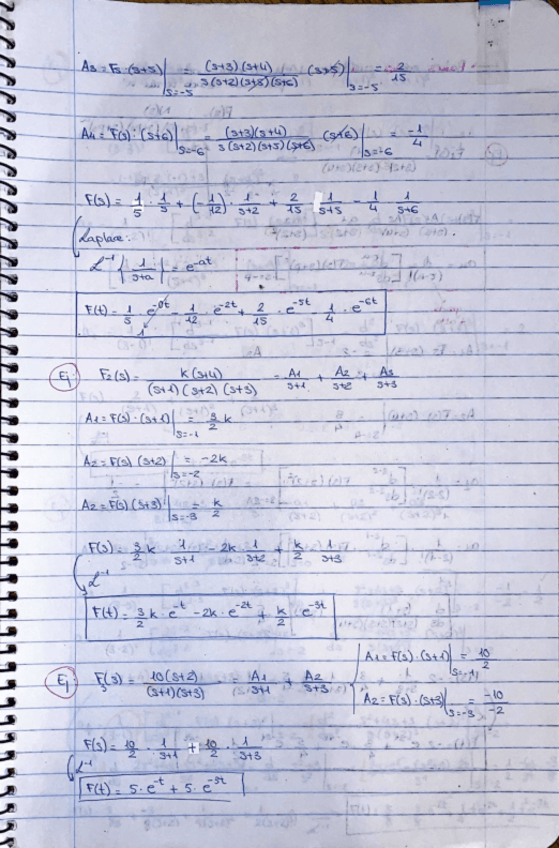 A3 = F3 · (s+5) |s=-5 = (s+3)(s+4) / s(s+2)(s+5)(s+6) (s+5) |s=-5 = 2/15
A4 = F(s) · (s+6) |s=-6 = (s+3)(s+4) / s(s+2)(s+5)(s+6) (s+6) |s=-6 = -1/4
F(s) = 1/5 · 1/s + (-1/12) · 1/s+2 + 2/15 1/s+5 - 1/4 1/s+6
Laplace:
ℒ⁻¹ { 1/s+a } = e^-at
F(t) = 1/5 · e^-0t - 1/12 · e^-2t + 2/15 · e^-5t - 1/4 · e^-6t
1
Ej F2(s) = k(s+4) / (s+1)(s+2)(s+3) = A1/s+1 + A2/s+2 + A3/s+3
A1 = F(s) · (s+1) |s=-1 = 3/2 k
A2 = F(s) (s+2) |s=-2 = -2k
A2 = F(s) (s+3) |s=-3 = k/2
F(s) = 3/2 k 1/s+1 - 2k 1/s+2 + k/2 1/s+3
ℒ⁻¹
F(t) = 3/2 k e^-t - 2k · e^-2t + k/2 e^-3t
Ej F3(s) = 10(s+2) / (s+1)(s+3) = A1/s+1 + A2/s+3
A1 = F(s) · (s+1) |s=-1 = 10/2
A2 = F(s) · (s+3) |s=-3 = -10/-2
F(s) = 10/2 · 1/s+1 + 10/2 · 1/s+3
ℒ⁻¹
F(t) = 5 · e^-t + 5 · e^-3t